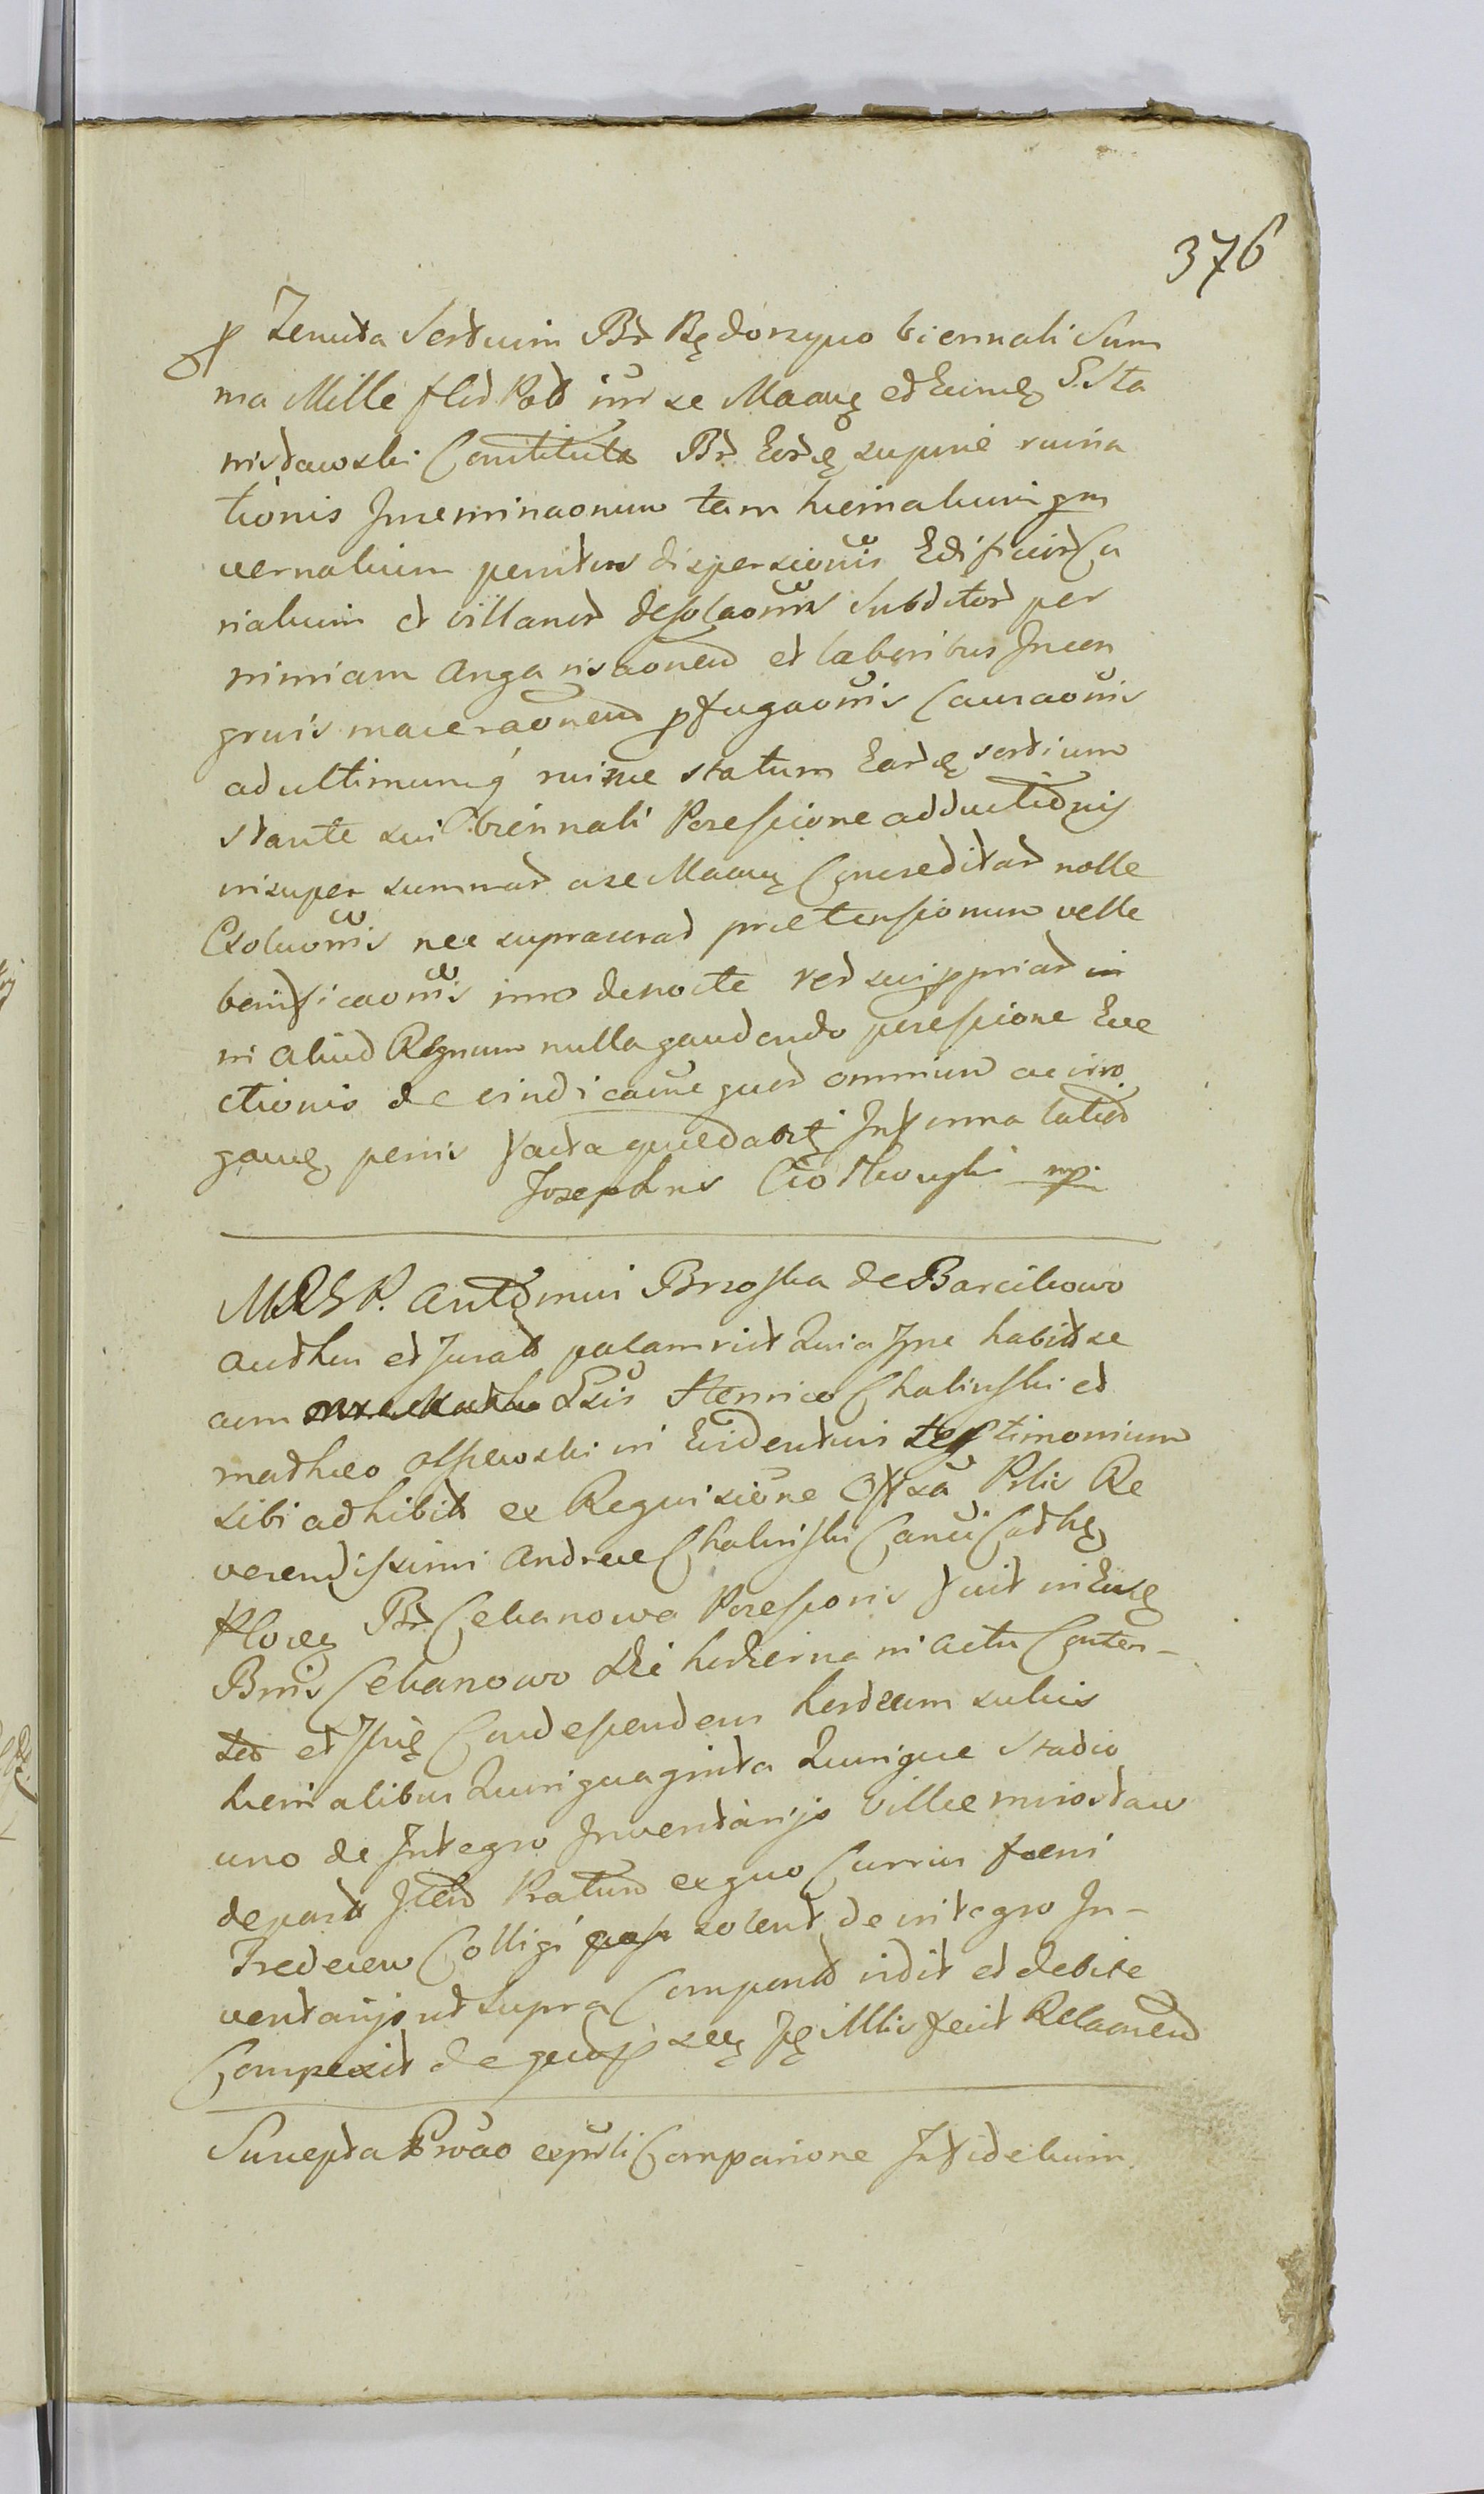 376
p Tenuta Sortium Br Rędorzyno biennali Sum
ma Mille flis Pol inr se Maavę et Eximę S. Sta
nisławski Constituta Br Eordę supinè ruina
tionis Inseminaonum tam hiemalium qm
vernalium penitus dispersionis Edificior Cu
rialium et villanor desolaonis Subditor per
nimiam Angarisaonem et laboribus Incon
gruis maceraonem pfugaonis Causaonis
ad ultimumq ruinæ statum Eardę sortium
stante sui biennali Possessione adductionis
insuper summar a se Maavę Concreditar nolle
Exoluonis nec suprascrar prætensionum velle
bonificaonis imo de nocte res sui ppriar
in aliud Regnum nulla gaudendo possessione Eve
ctionis de vindicanę quor omnium ac irro
gavę penis facta quedart Informa latior
Josephus Ciołkowski mp.
MRSP. Antonius Brzoska de Barcikowo
Authen et Jurat palam rict Quia Ipse habit se
cum Gsis Henrico Chalinski et
Mathæo Olszewski in Evidentius testimonium
sibi adhibit ex Requisicione Offsa Prlis Re
verendissimi Andreæ Chalinski Canci Cathę
Plocę Br Cekanowo Possessoris fuit in Eisdę
Bonis Cekanowo die hodierna in actu Conten-
to et Ipsę Condescendens hordeum sulcis
hiemalibus Quinquaginta Quinque Stadio
uno de Integro Inventarijo Villæ mirosław
depast Item Pratum ex quo Currus foeni
Tredecem Colligi solent, de integro In-
ventarijo ut supra Compast vidit et debite
Conspexit de quo p seę Ję Mlis fecit Relaonem
Suscepta Prôao ex prli Comparione Infidelium